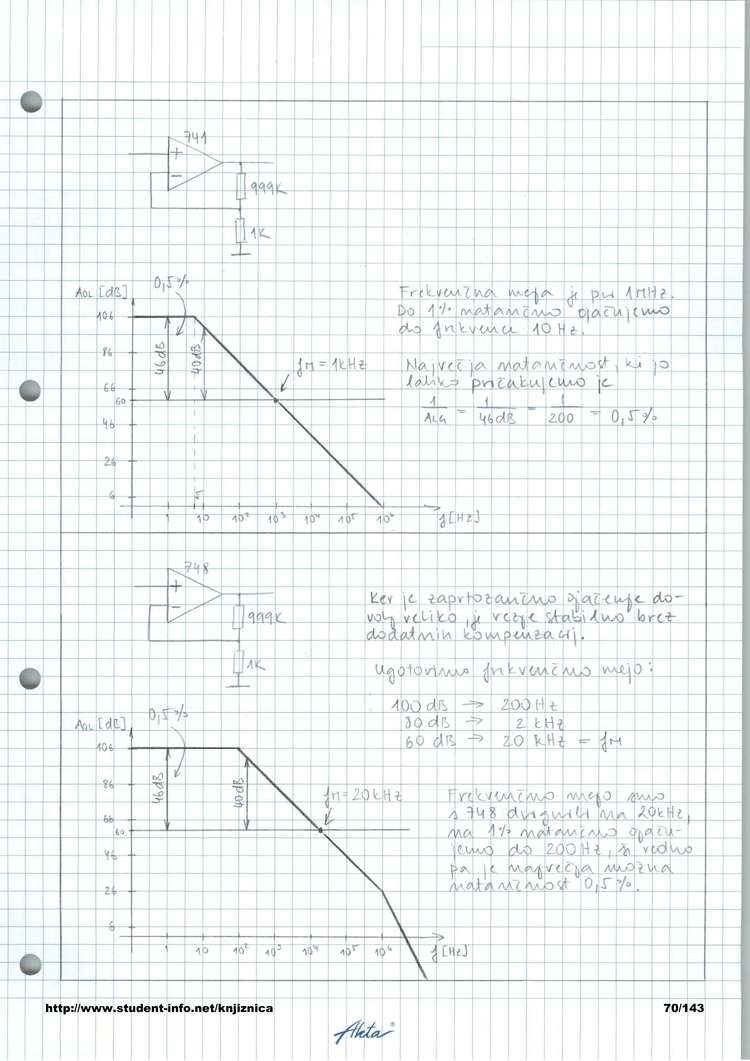 741
+
−
999K
1K
AOL [dB]
0,5%
106
86
66
60
46
26
6
46dB
40dB
fM = 1kHz
5
1 10 10² 10³ 10⁴ 10⁵ 10⁶
f[Hz]
Frekvenčna meja je pri 1MHz.
Do 1% natančno ojačujemo
do frekvence 10 Hz.
Največja natančnost, ki jo
lahko pričakujemo je
1/ALG = 1/46dB = 1/200 = 0,5%
748
+
−
999K
1K
Ker je zaprtozančno ojačenje do-
volj veliko, je vezje stabilno brez
dodatnih kompenzacij.
Ugotovimo frekvenčno mejo:
100 dB → 200 Hz
80 dB → 2 kHz
60 dB → 20 kHz = fM
AOL [dB]
0,5%
106
86
66
60
46
26
6
46dB
40dB
fM = 20kHz
1 10 10² 10³ 10⁴ 10⁵ 10⁶
f[Hz]
Frekvenčno mejo smo
s 748 dvignili na 20kHz,
na 1% natančno ojaču-
jemo do 200 Hz, še vedno
pa je največja možna
natančnost 0,5%.
http://www.student-info.net/knjiznica
70/143
Akta